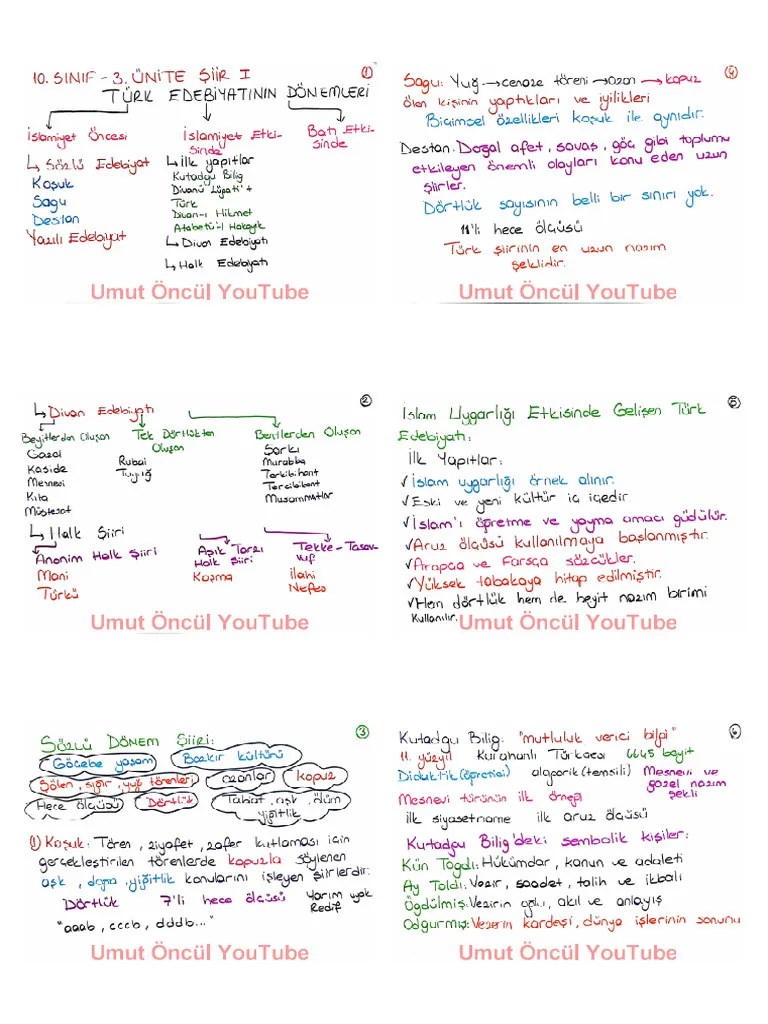 10. SINIF - 3. ÜNİTE ŞİİR I
1
TÜRK EDEBİYATININ DÖNEMLERİ
İslamiyet Öncesi
↳ Sözlü Edebiyat
Koşuk
Sagu
Destan
Yazılı Edebiyat
İslamiyet Etki-
sinde
↳ İlk yapıtlar
Kutadgu Bilig
Divanü Lügati't
Türk
Divan-ı Hikmet
Atabetü'l Hakayık
↳ Divan Edebiyatı
↳ Halk Edebiyatı
Batı Etki-
sinde
Umut Öncül YouTube
2
↳ Divan Edebiyatı
Beyitlerden Oluşan
Gazel
Kaside
Mesnevi
Kıta
Müstezat
Tek Dörtlükten
Oluşan
Rubai
Tuyuğ
Bentlerden Oluşan
Şarkı
Murabba
Terkibibent
Terciibent
Musammatlar
↳ Halk Şiiri
Anonim Halk Şiiri
Mani
Türkü
Aşık Tarzı
Halk Şiiri
Koşma
Tekke-Tasav-
vuf
İlahi
Nefes
Umut Öncül YouTube
3
SÖZLÜ DÖNEM ŞİİRİ:
Göçebe yaşam
Bozkır kültürü
Şölen, sığır, yuğ törenleri
ozanlar
kopuz
Hece ölçüsü
Dörtlük
Tabiat, aşk, ölüm
yiğitlik
1) Koşuk: Tören, ziyafet, zafer kutlaması için
gerçekleştirilen törenlerde kopuzla söylenen
aşk, doğa, yiğitlik konularını işleyen şiirlerdir.
Dörtlük 7'li hece ölçüsü Yarım uyak
Redif
"aaab, cccb, dddb..."
Umut Öncül YouTube
4
Sagu: Yuğ → cenaze töreni → ozan → kopuz
ölen kişinin yaptıkları ve iyilikleri
Biçimsel özellikleri koşuk ile aynıdır.
Destan: Doğal afet, savaş, göç gibi toplumu
etkileyen önemli olayları konu eden uzun
şiirler.
Dörtlük sayısının belli bir sınırı yok.
11'li hece ölçüsü
Türk şiirinin en uzun nazım
şeklidir.
Umut Öncül YouTube
5
İslam Uygarlığı Etkisinde Gelişen Türk
Edebiyatı:
İlk Yapıtlar:
✓İslam uygarlığı örnek alınır.
✓Eski ve yeni kültür iç içedir
✓İslam'ı öğretme ve yayma amacı güdülür.
✓Aruz ölçüsü kullanılmaya başlanmıştır.
✓Arapça ve Farsça sözcükler.
✓Yüksek tabakaya hitap edilmiştir.
✓Hem dörtlük hem de beyit nazım birimi
kullanılır.
Umut Öncül YouTube
6
Kutadgu Bilig: "mutluluk verici bilgi"
11. yüzyıl Karahanlı Türkçesi 6645 beyit
Didaktik (öğretici) alegorik (temsili) Mesnevi ve
gazel nazım
şekli
Mesnevi türünün ilk örneği
İlk siyasetname ilk aruz ölçüsü
Kutadgu Bilig'deki sembolik kişiler:
Kün Togdı: Hükümdar, kanun ve adaleti
Ay Toldı: Vezir, saadet, talih ve ikbali
Ögdülmiş: Vezirin oğlu, akıl ve anlayış
Odgurmış: Vezirin kardeşi, dünya işlerinin sonunu
Umut Öncül YouTube